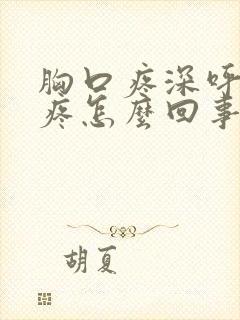 胸口疼深呼
疼怎麼回事
胡夏